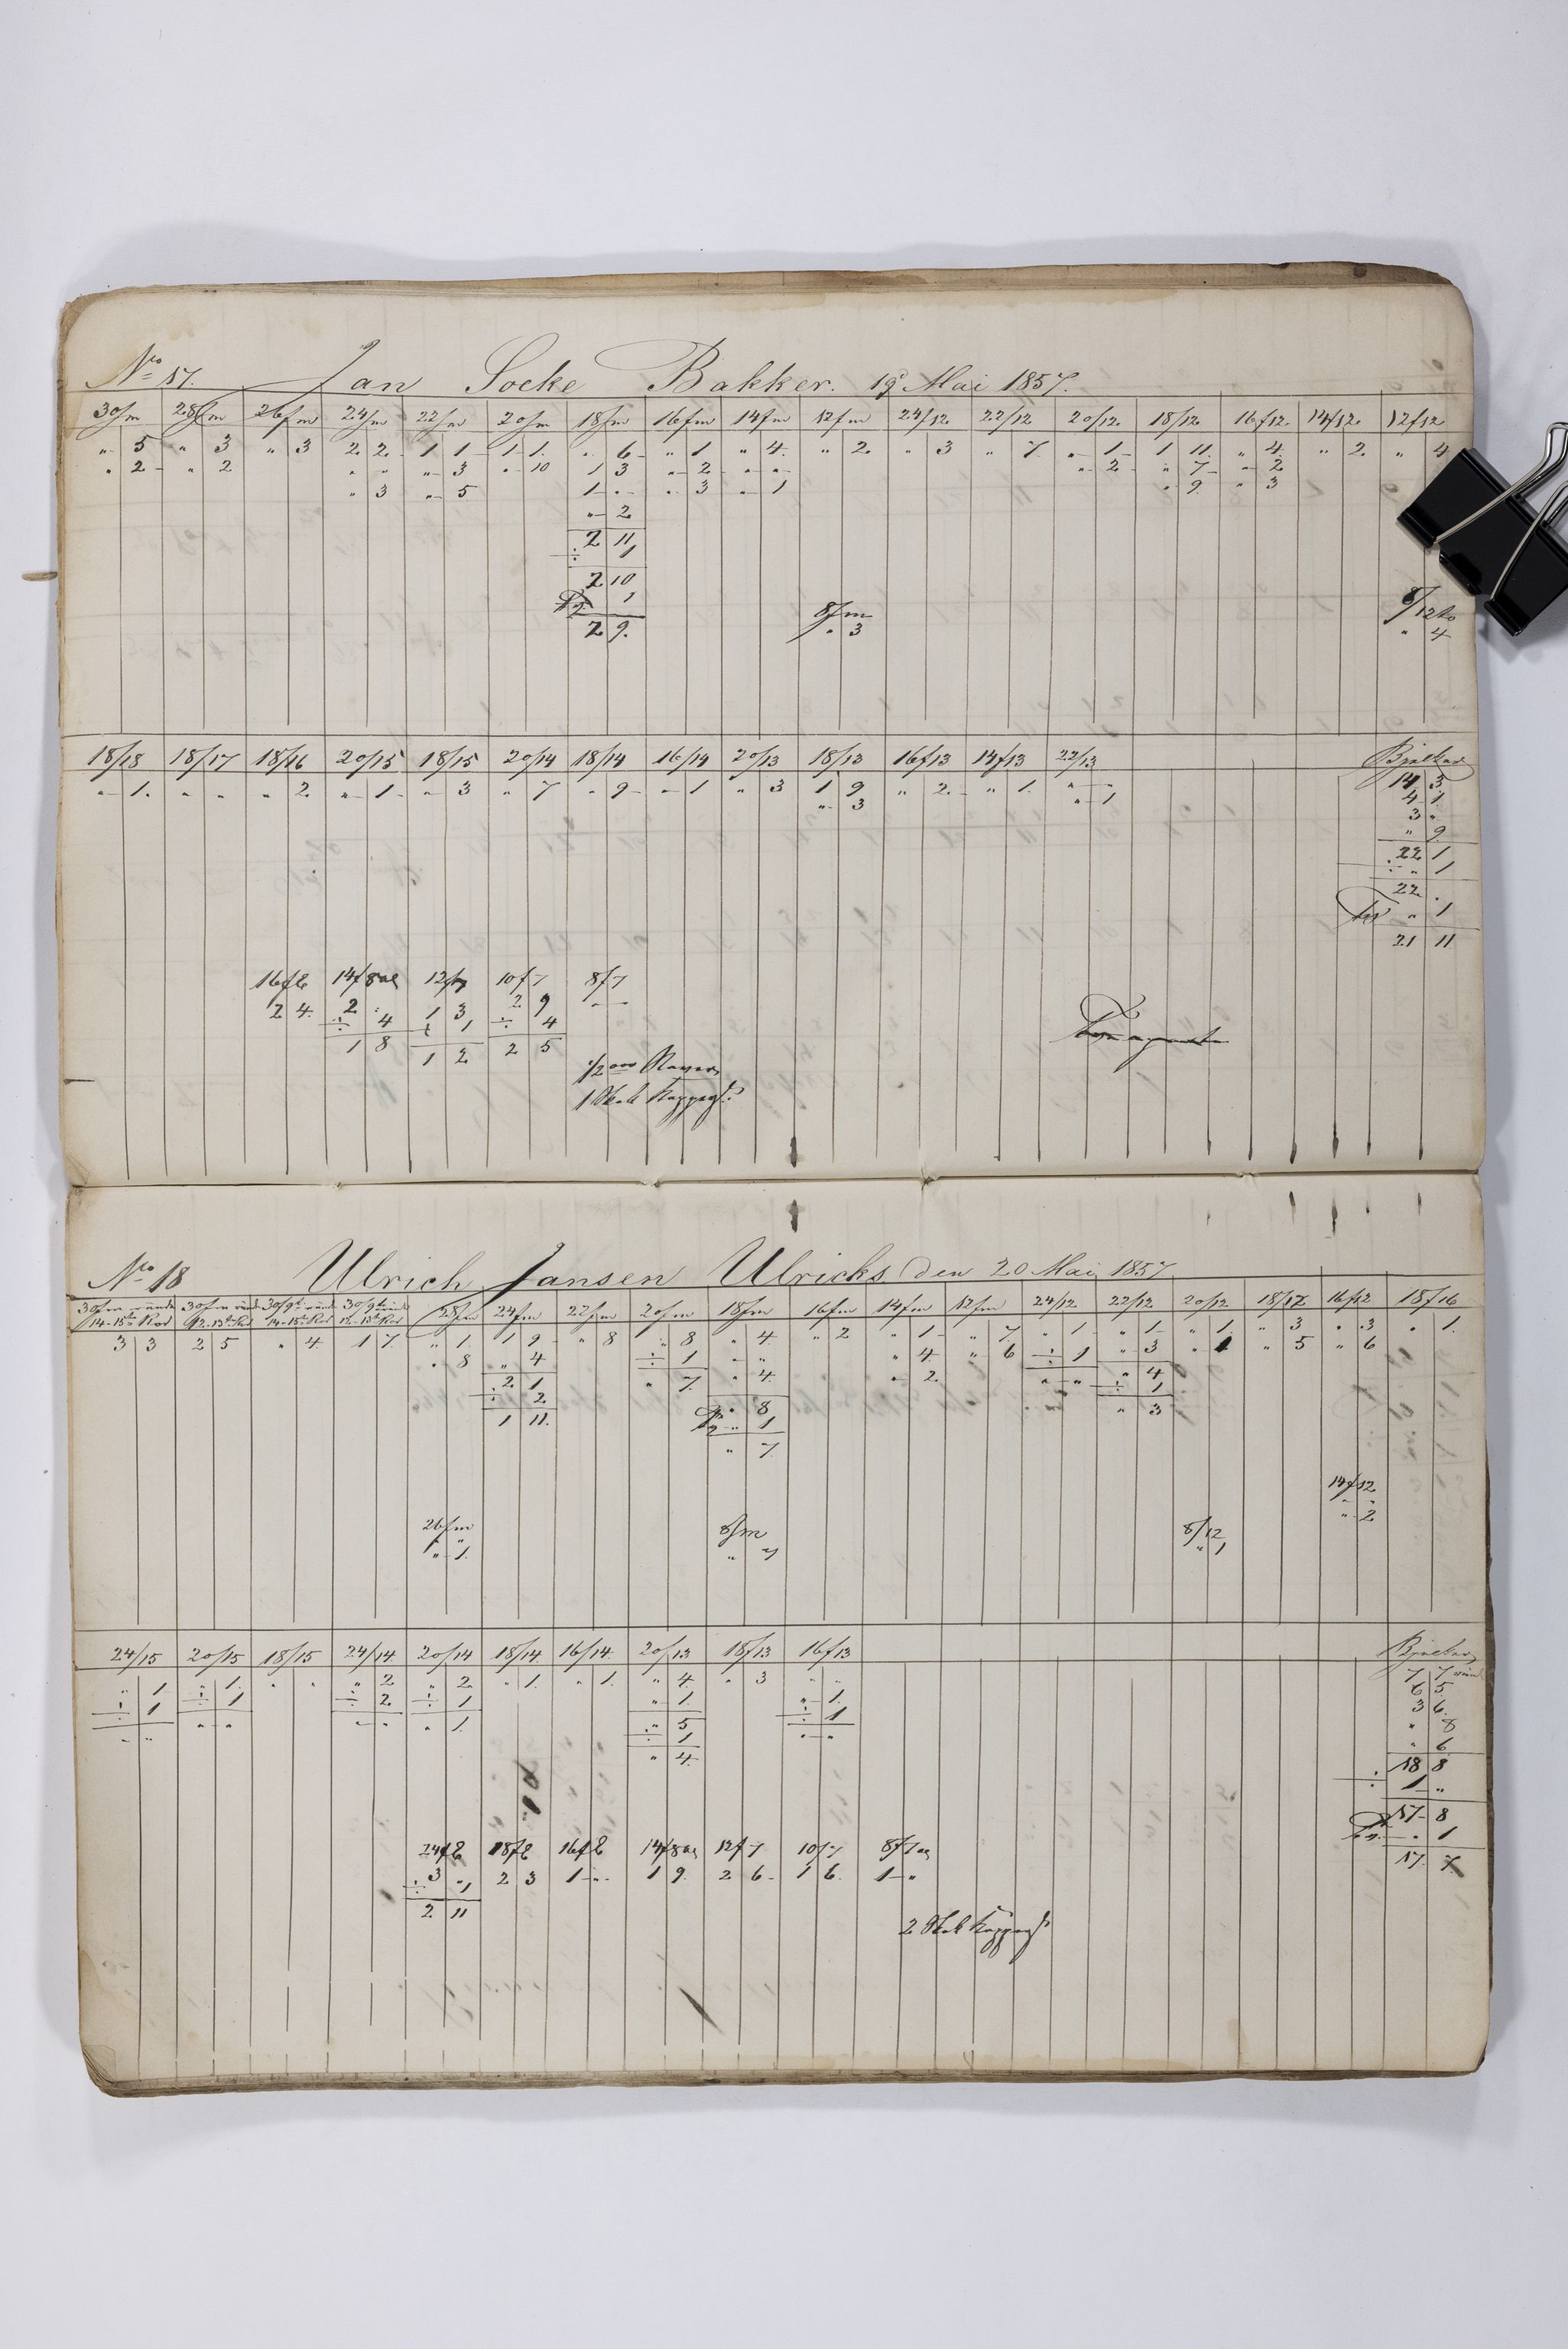 No 17. Jan Socke Bakker. 19 Mai 1857.
30/m 28/m 26/m 24/m 22/m 20/m 18/m 16/m 14/m 12/m 24/12 22/12 20/12 18/12 16/12 14/12 12/12
" 5 " 3 " 3 2 2 1 1 1 1 " 6 " 1 " 4 " 2 " 3 " 7 " 1 1 11 " 4 " 2 " 4
" 2 " 2 " " " 3 " 10 1 3 " 2 " " " 2 " 7 " 2
" 3 " 5 1 " " 3 " 1 " 9 " 3
" 2
2 11
÷ 1
2 10
1
2 9
8/m
" 3
8/12
" 4
18/18 18/17 18/16 20/15 18/15 20/14 18/14 16/14 20/13 18/13 16/13 14/13 22/13 Bjelker
" 1 " " " 2 " 1 " 3 " 7 " 9 " 1 " 3 1 9 " 2 " 1 " " 14 3
" 3 " 1 4 1
3 "
" 9
22 1
÷ " 1
22 "
" 1
21 11
16/8 14/8 12/7 10/7 8/7
2 4 2 " 1 3 2 9 " "
÷ 4 ÷ 1 ÷ 4
1 8 1 2 2 5
1/2
1
No 18 Ulrich Jansen Ulricks den 20 Mai 1857
30/m 30/m 30/9 30/9 28/m 24/m 22/m 20/m 18/m 16/m 14/m 12/m 24/12 22/12 20/12 18/12 16/12 18/16
3 3 2 5 " 4 1 7 " 1 1 9 " 8 " 8 " 4 " 2 " 1 " 7 " 1 " 1 " 1 " 3 " 3 " 1
" 8 " 4 ÷ 1 " " " 4 " 6 ÷ 1 " 3 " 1 " 5 " 6
2 1 " 7 " 4 " 2 " " " 4
÷ 2 " 8 ÷ 1
1 11 " 1 " 3
" 7
14/12
" "
" 2
26/m 8/m 8/12
" 1 " 1
24/15 20/15 18/15 24/14 20/14 18/14 16/14 20/13 18/13 16/13 Bjelker
" 1 " 1 " " " 2 " 2 " 1 " 1 " 4 " 3 " " 7 7
÷ 1 ÷ 1 ÷ 2 ÷ 1 " 1 " 1 6 5
" " " " " " " 1 " 5 ÷ 1 3 6
÷ 1 " " " 8
" 4 " 6
18 8
÷ 1 "
17 8
" 1
17 7
24/8 18/8 16/8 14/8 12/7 10/7 8/7
3 " 2 3 1 " 1 9 2 6 1 6 1 "
÷ " 1
2 11
2